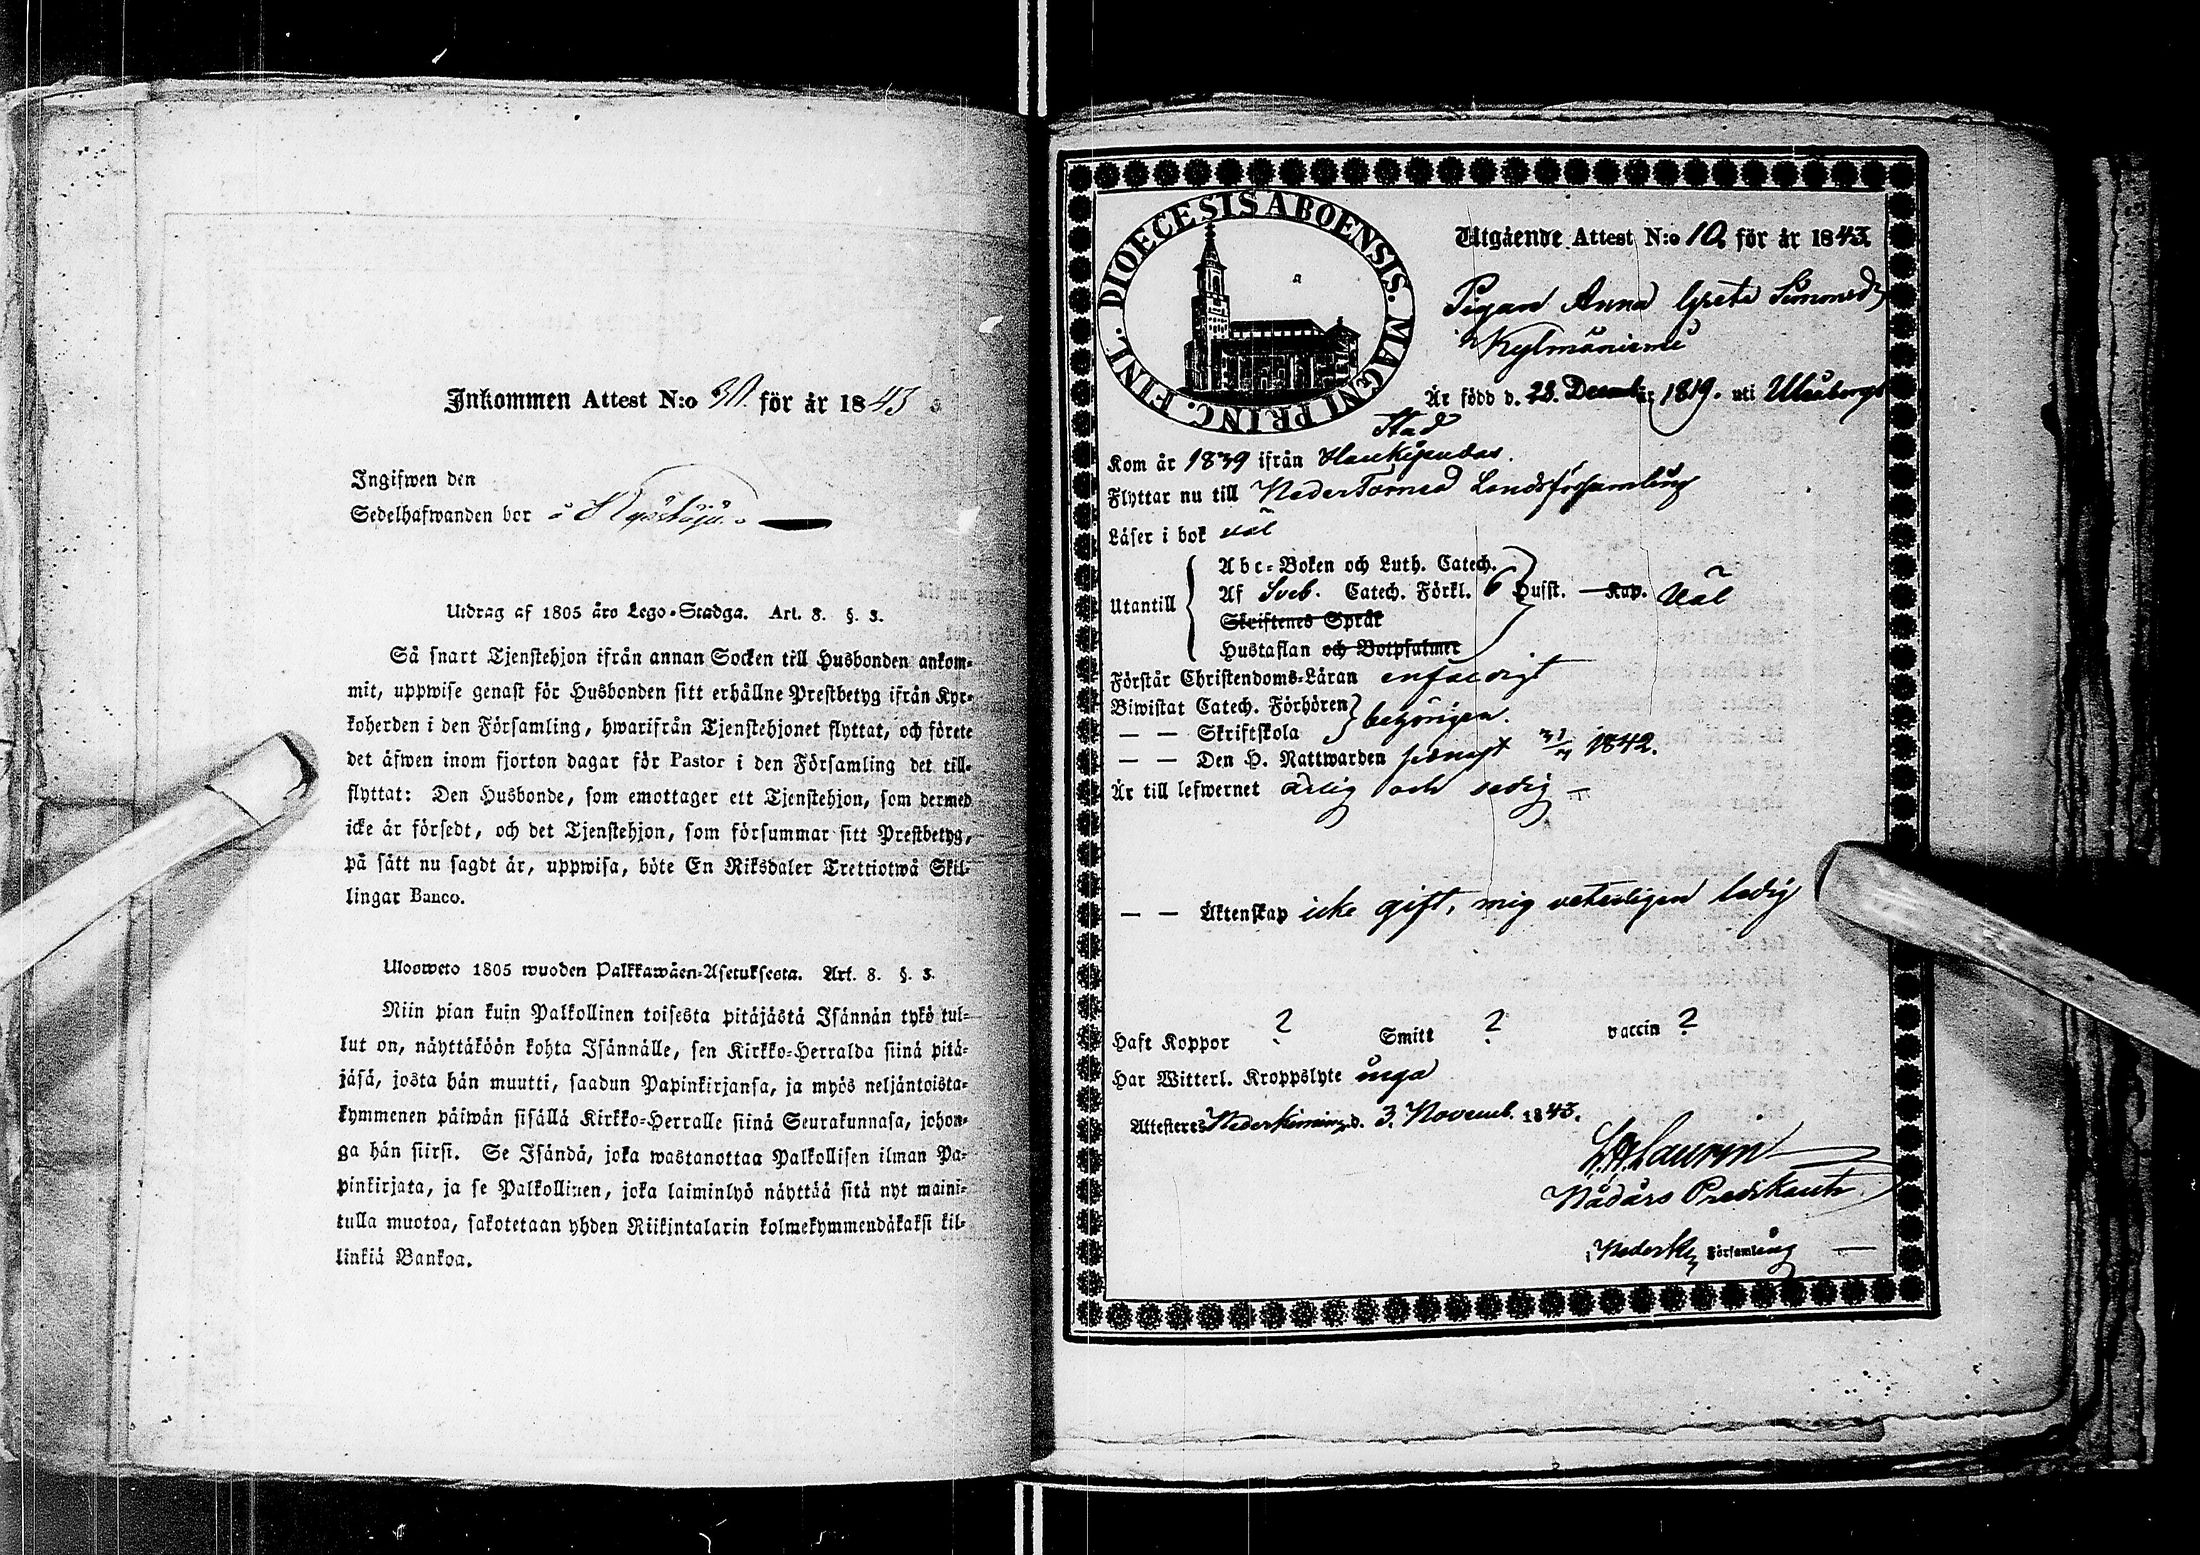 Inkommen Attest N:o 30. för år 1843
Ingifwen den
Sedelhafwanden bor å
Utdrag af 1805 års Lego-Stadga. Art. 8. §. 3.
Så snart Tjenstehjon ifrån annan Socken till Husbonden ankom-
mit, uppwise genast för Husbonden sitt erhållne Prestbetyg ifrån Kyr-
koherden i den Församling, hwarifrån Tjenstehjonet flyttat, och förete
det äfwen inom fjorton dagar för Pastor i den Församling det till-
flyttat: Den Husbonde, som emottager ett Tjenstehjon, som dermed
icke är försedt, och det Tjenstehjon, som försummar sitt Prestbetyg,
på sätt nu sagdt är, uppwisa, böte En Riksdaler Trettiotwå Skil-
lingar Banco.
Ulosweto 1805 wuoden Palkkawäen-Asetuksesta. Art. 8. §. 3.
Niin pian kuin Palkollinen toisesta pitäjästä Isännän tykö tul-
lut on, näyttäköön kohta Isännälle, sen Kirkko-Herralda siinä pitä-
jäsä, josta hän muutti, saadun Papinkirjansa, ja myös neljäntoista-
kymmenen päiwän sisällä Kirkko-Herralle siinä Seurakunnasa, johon-
ga hän siirsi. Se Isändä, joka wastanottaa Palkollisen ilman Pa-
pinkirjata, ja se Palkollinen, joka laiminlyö näyttää sitä nyt maini-
tulla muotoa, sakotetaan yhden Riikintalarin kolmekymmendäkaksi kil-
linkiä Bankoa.
DIOECESIS ABOENSIS. MAGNI PRINC. FINL.
Utgående Attest N:o 10. för år 1843.
Pigan Anna Greta Simonsdr
Kylmäniemi
Är född d. 28. Decemb. 1819. uti Uleåborgs
Stad
Kom år 1839 ifrån Haukipudas.
Flyttar nu till NederTorneå Landsförsamling
Läser i bok väl
Utantill
Abc-Boken och Luth. Catech.
Af Sveb. Catech. Förkl. 6 Husst. Kap. väl
Skriftenes Språk
Hustaflan och Botpsalmer
Förstår Christendoms-Läran enfaldigt
Biwistat Catech. Förhören
— — Skriftskola behörigen.
— — Den H. Nattwarden senast 1842.
Är till lefwernet ärlig och sedig —
— — Äktenskap icke gift, mig veterligen ledig
Haft Koppor ? Smitt ? vaccin ?
Har Witterl. Kroppslyte inga
Attesteres Nederkiming d. 3. Novemb. 1843.
Laurin
Nådårs Predikant
i Nederk. Församling —